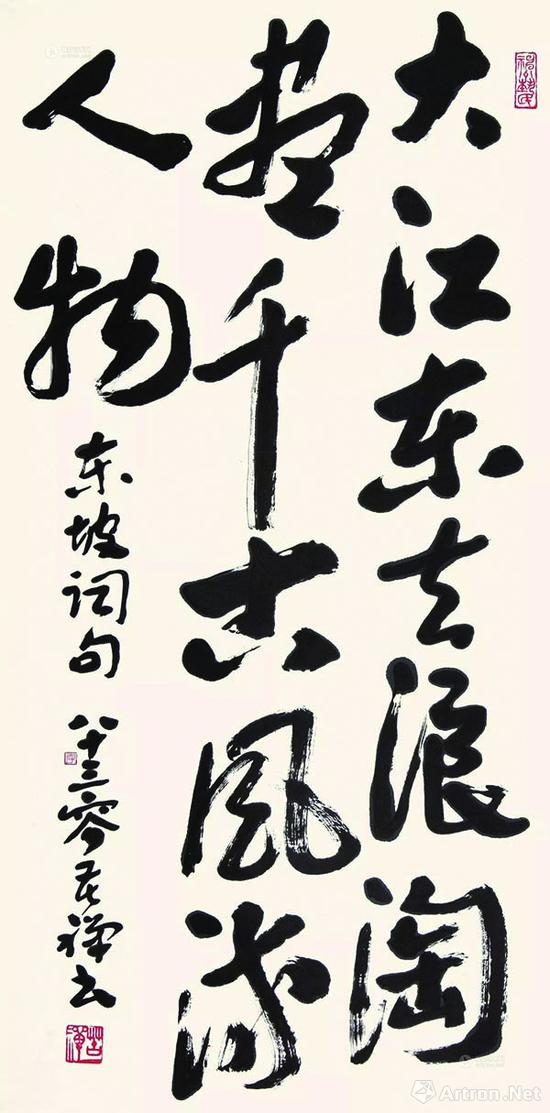 大江东去浪淘
尽千古风流
人物
东坡词句 八十三叟苦禅书
苦禅
Artron.Net